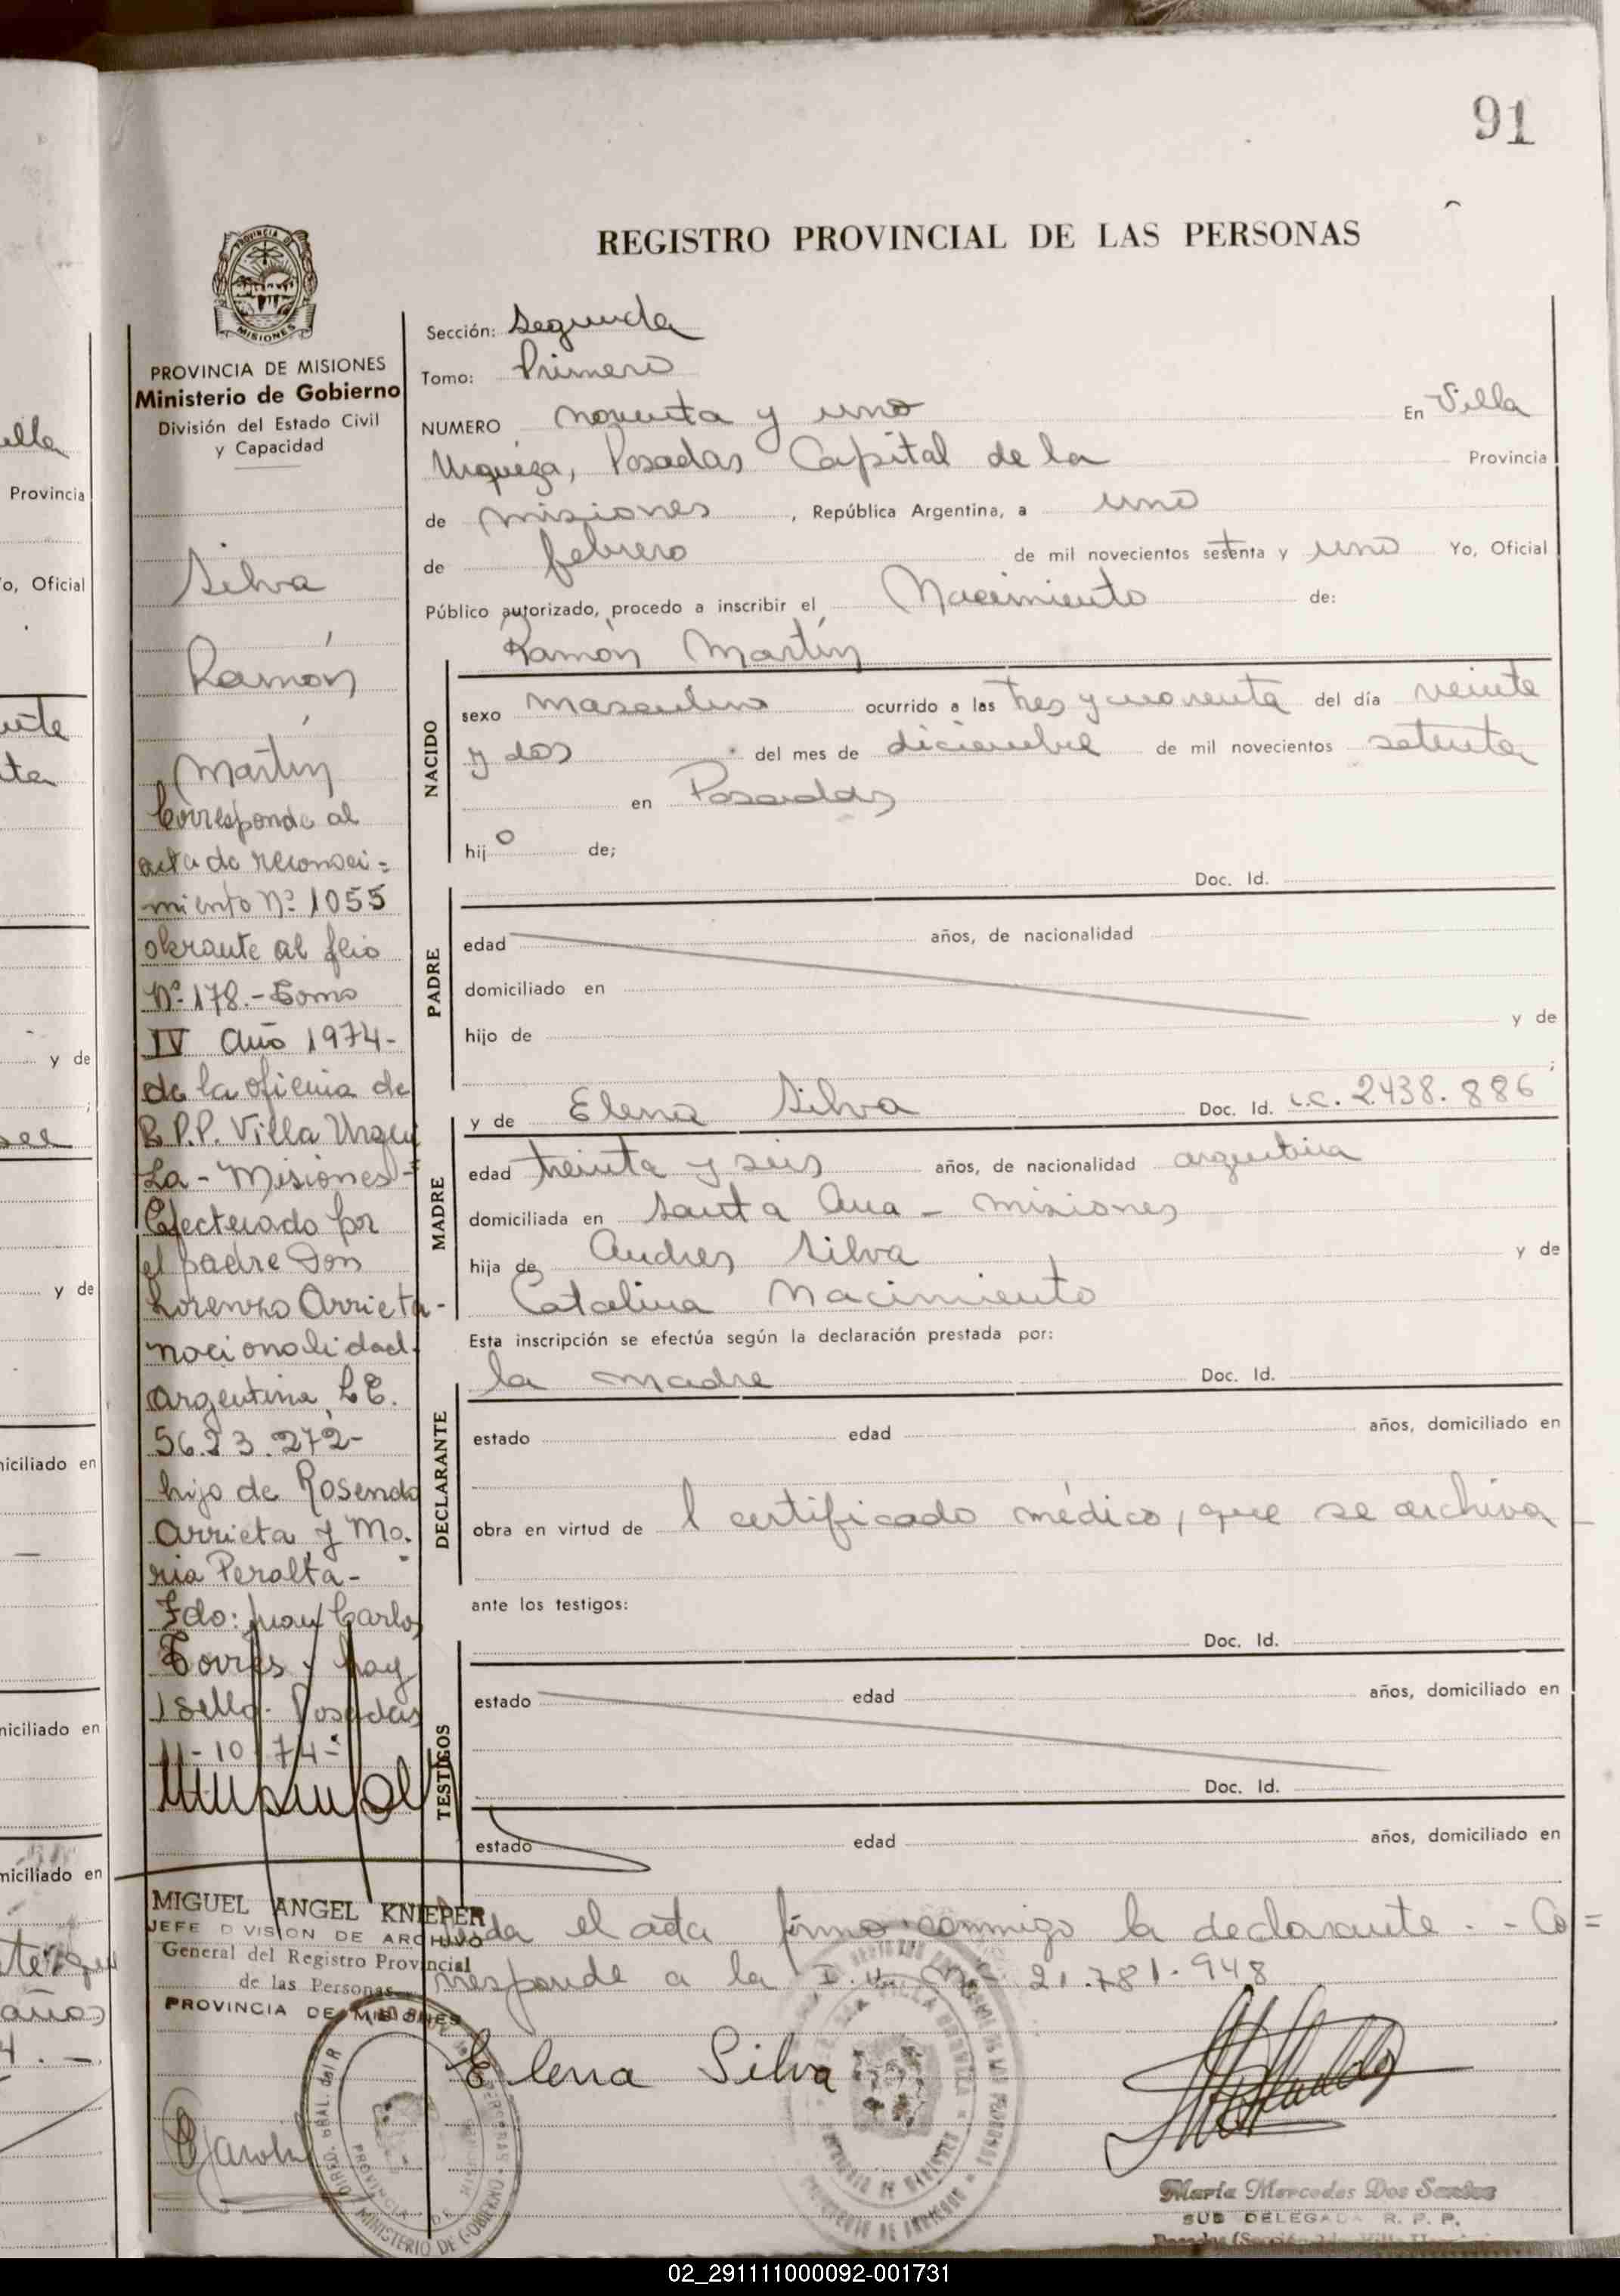 91
REGISTRO PROVINCIAL DE LAS PERSONAS
PROVINCIA DE
MISIONES
PROVINCIA DE MISIONES
Ministerio de Gobierno
División del Estado Civil
y Capacidad
Silva
Ramón
Martín
Corresponde al
acta de reconoci=
miento Nº 1055
obrante al flio
Nº 178.- Tomo
IV Año 1974-
de la oficina de
R.P.P. Villa Urqui
za - Misiones-
Efectuado por
el padre Don
Lorenzo Arrieta-
nacionalidad
argentina, L.E.
56.23.272-
hijo de Rosendo
Arrieta y Ma.
ria Peralta-
Fdo: Juan Carlos
Torres y hay
1 sello. Posadas
11-10-74-
MIGUEL ANGEL KNIEPER
JEFE DIVISION DE ARCHIVO
General del Registro Provincial
de las Personas
PROVINCIA DE MISIONES
Sección: Segunda
Tomo: Primero
NUMERO noventa y uno En Villa
Urquiza, Posadas Capital de la Provincia
de misiones, República Argentina, a uno
de febrero de mil novecientos setenta y uno Yo, Oficial
Público autorizado, procedo a inscribir el Nacimiento de:
Ramón Martín
NACIDO
sexo masculino ocurrido a las tres y cuarenta del día veinte
y dos del mes de diciembre de mil novecientos setenta
en Posadas
hijo de;
Doc. Id.
PADRE
edad años, de nacionalidad
domiciliado en
hijo de y de
;
MADRE
y de Elena Silva Doc. Id. L.C. 2438.886
edad treinta y seis años, de nacionalidad argentina
domiciliada en Santa Ana - misiones
hija de Andres Silva y de
Catalina Nacimiento
Esta inscripción se efectúa según la declaración prestada por:
la madre Doc. Id.
DECLARANTE
estado edad años, domiciliado en
obra en virtud de l certificado médico, que se archiva
ante los testigos:
Doc. Id.
TESTIGOS
estado edad años, domiciliado en
Doc. Id.
estado edad años, domiciliado en
el acta firma conmigo la declarante.- Co=
rresponde a la D.U. Nº 21.781.948
Elena Silva
María Mercedes Dos Santos
SUB DELEGADA R. P. P.
MINISTERIO DE GOBIERNO
02_291111000092-001731